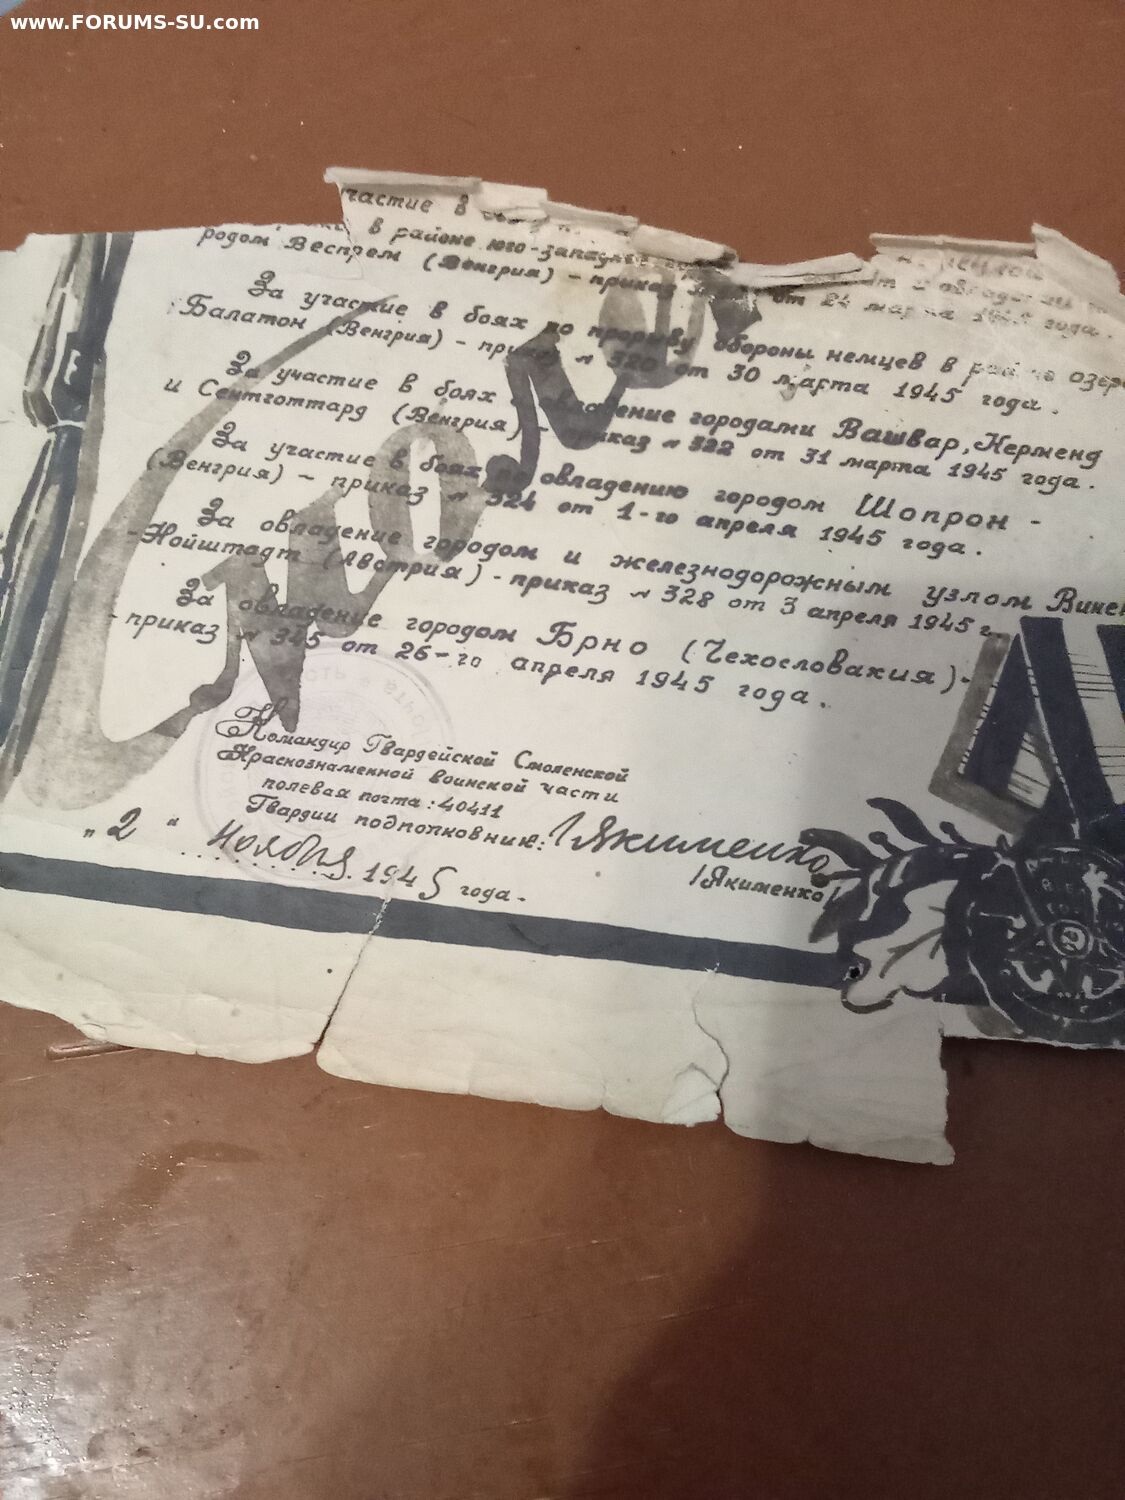 www.FORUMS-SU.com
частие в
в районе юго-запад
родом Веспрем (Венгрия) – приказ от 24 марта года.
За участие в боях по прорыву обороны немцев в районе озер
Балатон (Венгрия) – приказ № 320 от 30 марта 1945 года.
За участие в боях овладение городами Вашвар, Керменд
и Сентготтард (Венгрия) – приказ № 322 от 31 марта 1945 года.
За участие в боях по овладению городом Шопрон -
(Венгрия) – приказ № 324 от 1-го апреля 1945 года.
За овладение городом и железнодорожным узлом Винен
-Нойштадт (Австрия) - приказ № 328 от 3 апреля 1945 г.
За овладение городом Брно (Чехословакия)-
-приказ № 345 от 26-го апреля 1945 года.
Командир Гвардейской Смоленской
Краснознаменной воинской части
полевая почта: 40411
Гвардии подполковник: Якименко
/Якименко/
„2“ ноября 1945 года.